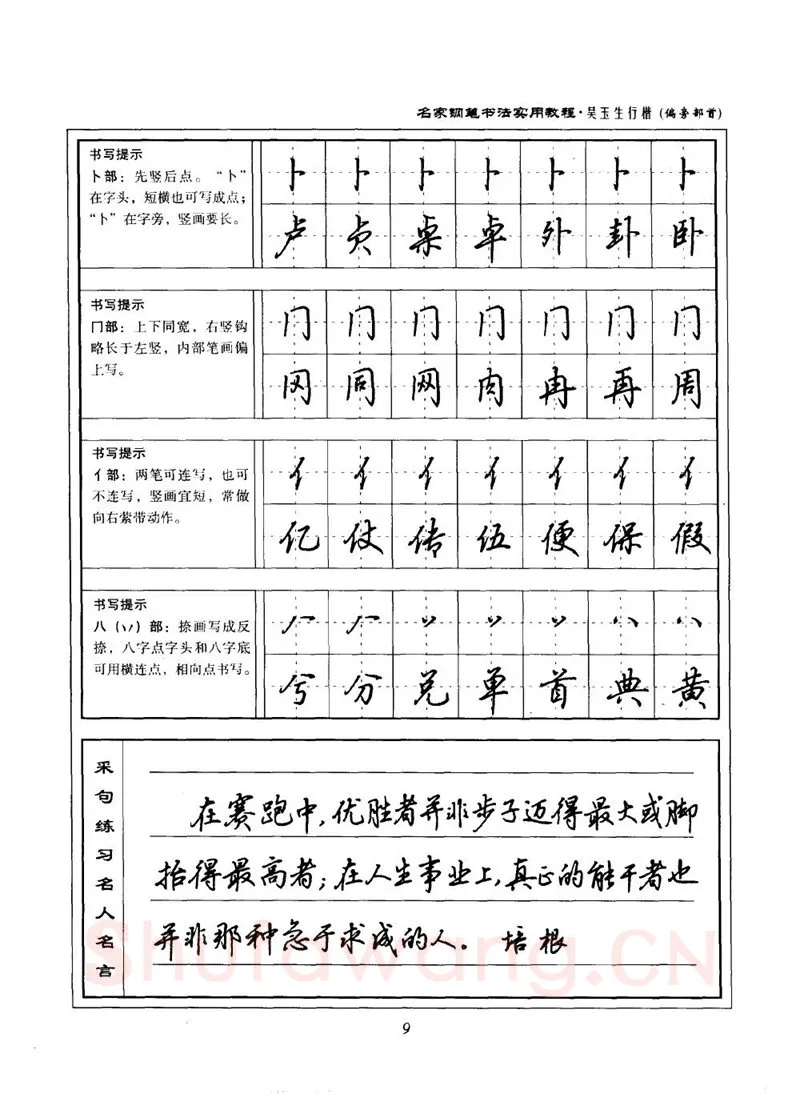 名家钢笔书法实用教程·吴玉生行楷(偏旁部首)
书写提示
卜部：先竖后点。“卜”
在字头，短横也可写成点；
“卜”在字旁，竖画要长。
卜 卜 卜 卜 卜 卜 卜
卢 贞 桌 卓 外 卦 卧
书写提示
冂部：上下同宽，右竖钩
略长于左竖，内部笔画偏
上写。
门 门 门 门 门 门 门
冈 同 网 肉 冉 再 周
书写提示
亻部：两笔可连写，也可
不连写，竖画宜短，常做
向右萦带动作。
亻 亻 亻 亻 亻 亻 亻
亿 仗 传 伍 便 保 假
书写提示
八（丷）部：捺画写成反
捺，八字点字头和八字底
可用横连点，相向点书写。
八 八 丷 丷 丷 八 八
兮 分 兑 单 首 典 黄
采句练习名人名言
在赛跑中，优胜者并非步子迈得最大或脚
抬得最高者；在人生事业上，真正的能干者也
并非那种急于求成的人。 培根
Shufawang.CN
9